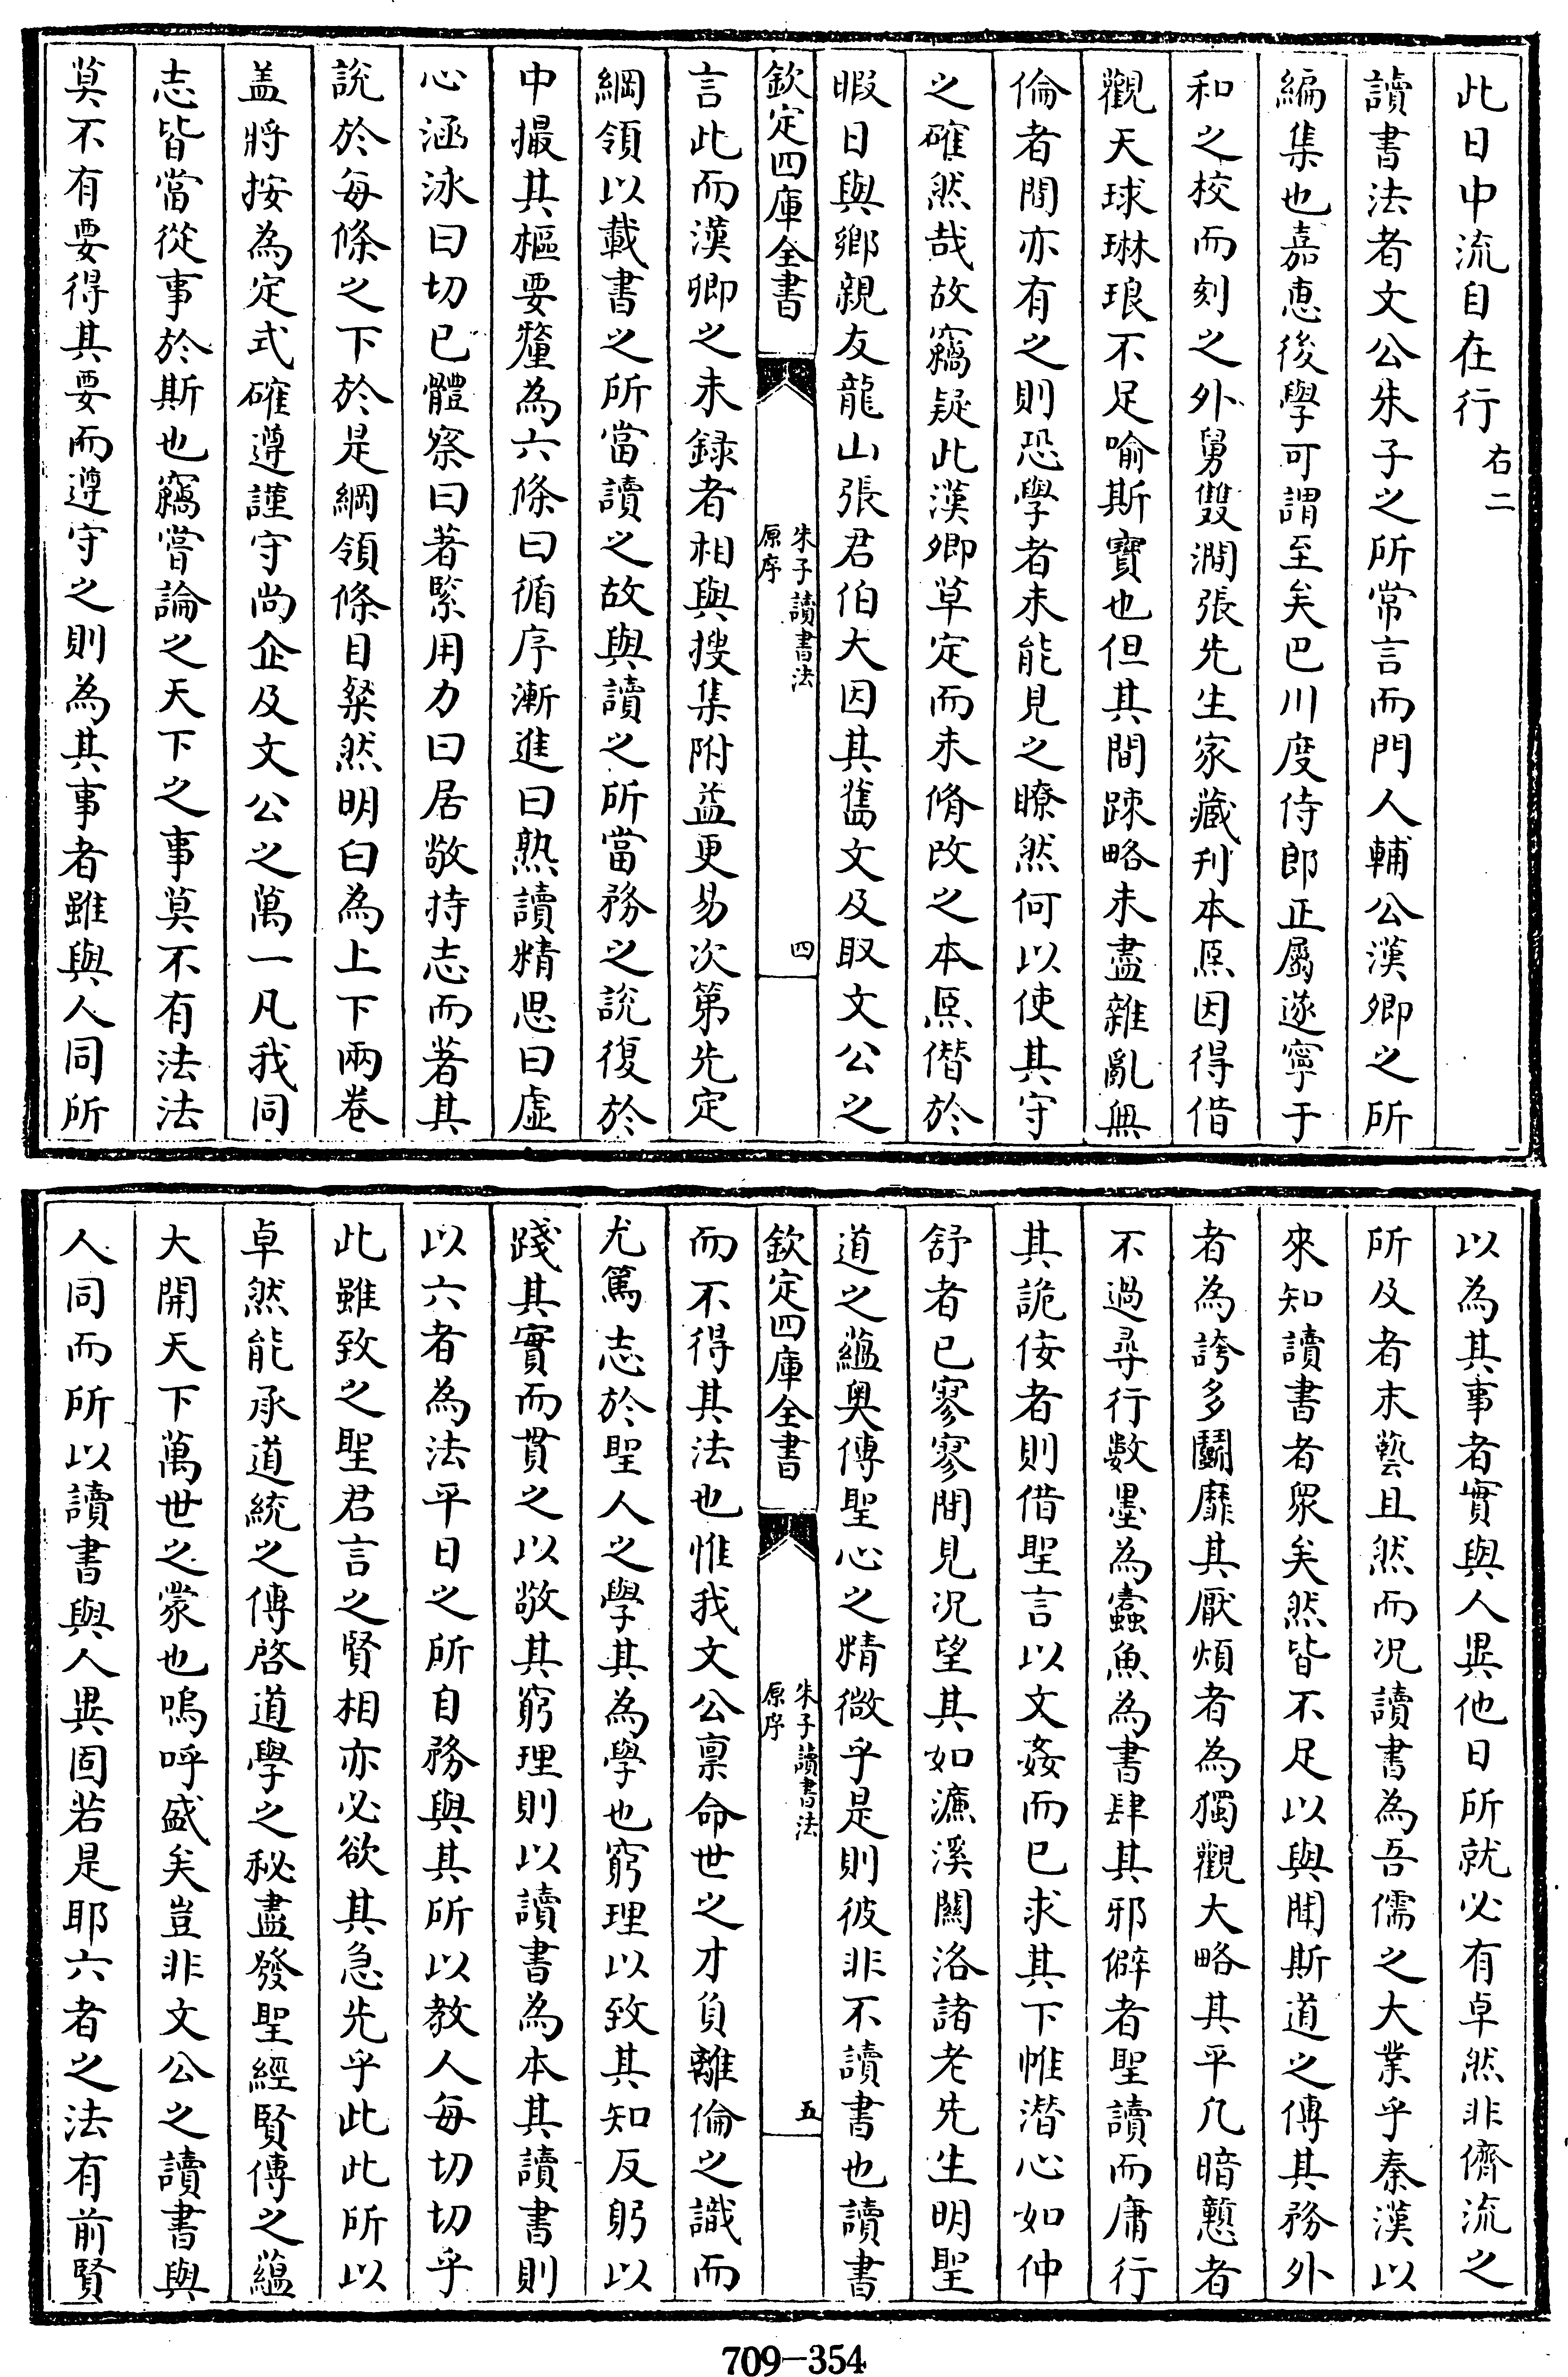 此日中流自在行右二
讀書法者文公朱子之所常言而門人輔公漢卿之所
編集也嘉惠後學可謂至矣巴川度侍郎正屬遂寧于
和之校而刻之外舅雙澗張先生家藏刋本㷧因得借
觀天球琳琅不足喻斯寶也但其間踈略未盡雜亂無
倫者間亦有之則恐學者未能見之瞭然何以使其守
之確然哉故竊疑此漢卿草定而未脩改之本㷧僭於
暇日與鄉親友龍山張君伯大因其舊文及取文公之
欽定四庫全書
朱子讀書法
原序
四
言此而漢卿之未録者相與搜集附益更易次第先定
綱領以載書之所當讀之故與讀之所當務之說復於
中撮其樞要釐為六條曰循序漸進曰熟讀精思曰虛
心涵泳曰切已體察曰著緊用力曰居敬持志而著其
說於每條之下於是綱領條目粲然明白為上下兩卷
盖將按為定式確遵謹守尚企及文公之萬一凡我同
志皆當從事於斯也竊嘗論之天下之事莫不有法法
莫不有要得其要而遵守之則為其事者雖與人同所
以為其事者實與人異他日所就必有卓然非儕流之
所及者末藝且然而况讀書為吾儒之大業乎秦漢以
來知讀書者衆矣然皆不足以與聞斯道之傳其務外
者為誇多鬭靡其厭煩者為獨觀大略其平凡暗懇者
不過尋行數墨為蠹魚為書肆其邪僻者聖讀而庸行
其詭佞者則借聖言以文姦而已求其下惟潛心如仲
舒者已寥寥間見况望其如濂溪關洛諸老先生明聖
道之蘊奥傳聖心之精微乎是則彼非不讀書也讀書
欽定四庫全書
朱子讀書法
原序
五
而不得其法也惟我文公禀命世之才負離倫之識而
尤篤志於聖人之學其為學也窮理以致其知反躬以
踐其實而貫之以敬其窮理則以讀書為本其讀書則
以六者為法平日之所自務與其所以教人每切切乎
此雖致之聖君言之賢相亦必欲其急先乎此此所以
卓然能承道統之傳啓道學之秘盡發聖經賢傳之蘊
大開天下萬世之蒙也嗚呼盛矣豈非文公之讀書與
人同而所以讀書與人異固若是耶六者之法有前賢
709-354